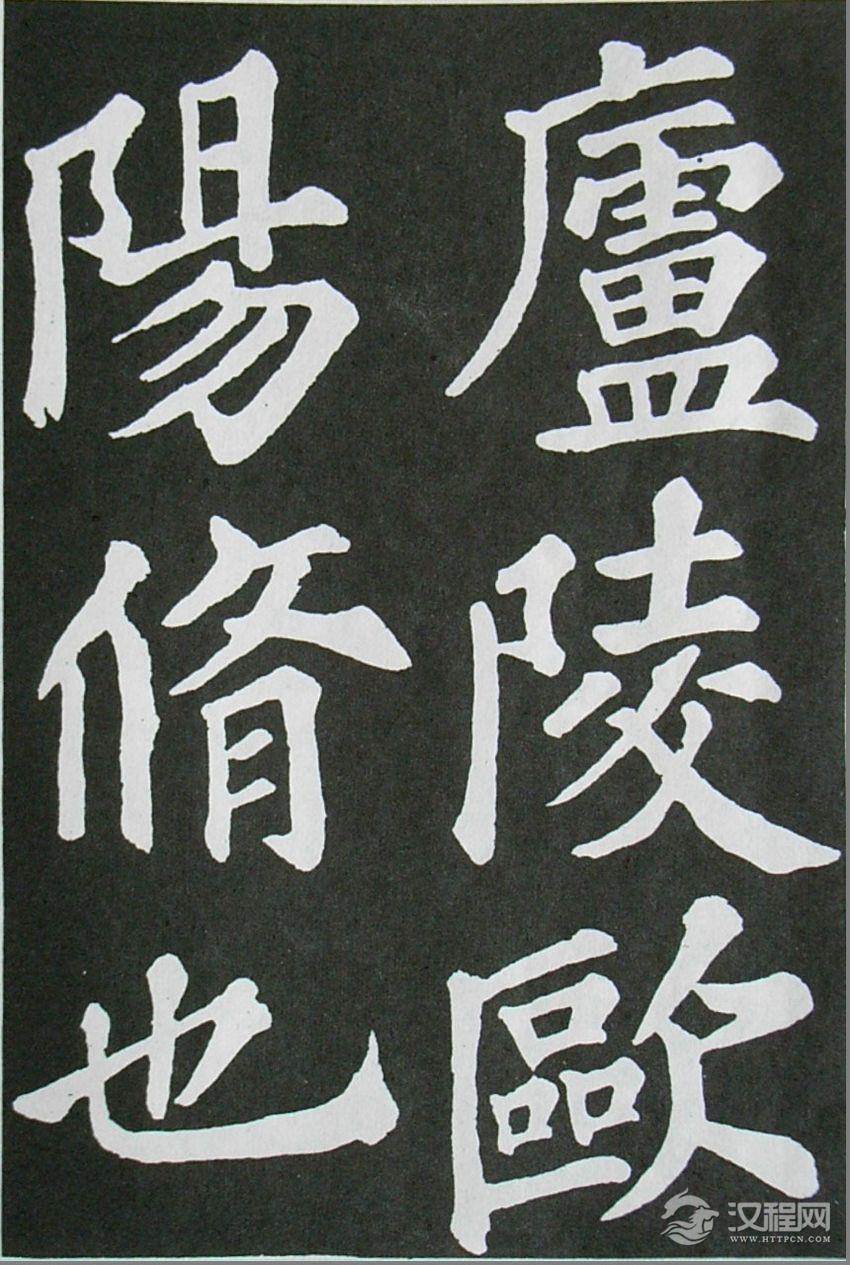 廬陵歐
陽脩也
汉程网
WWW.HTTPCN.COM